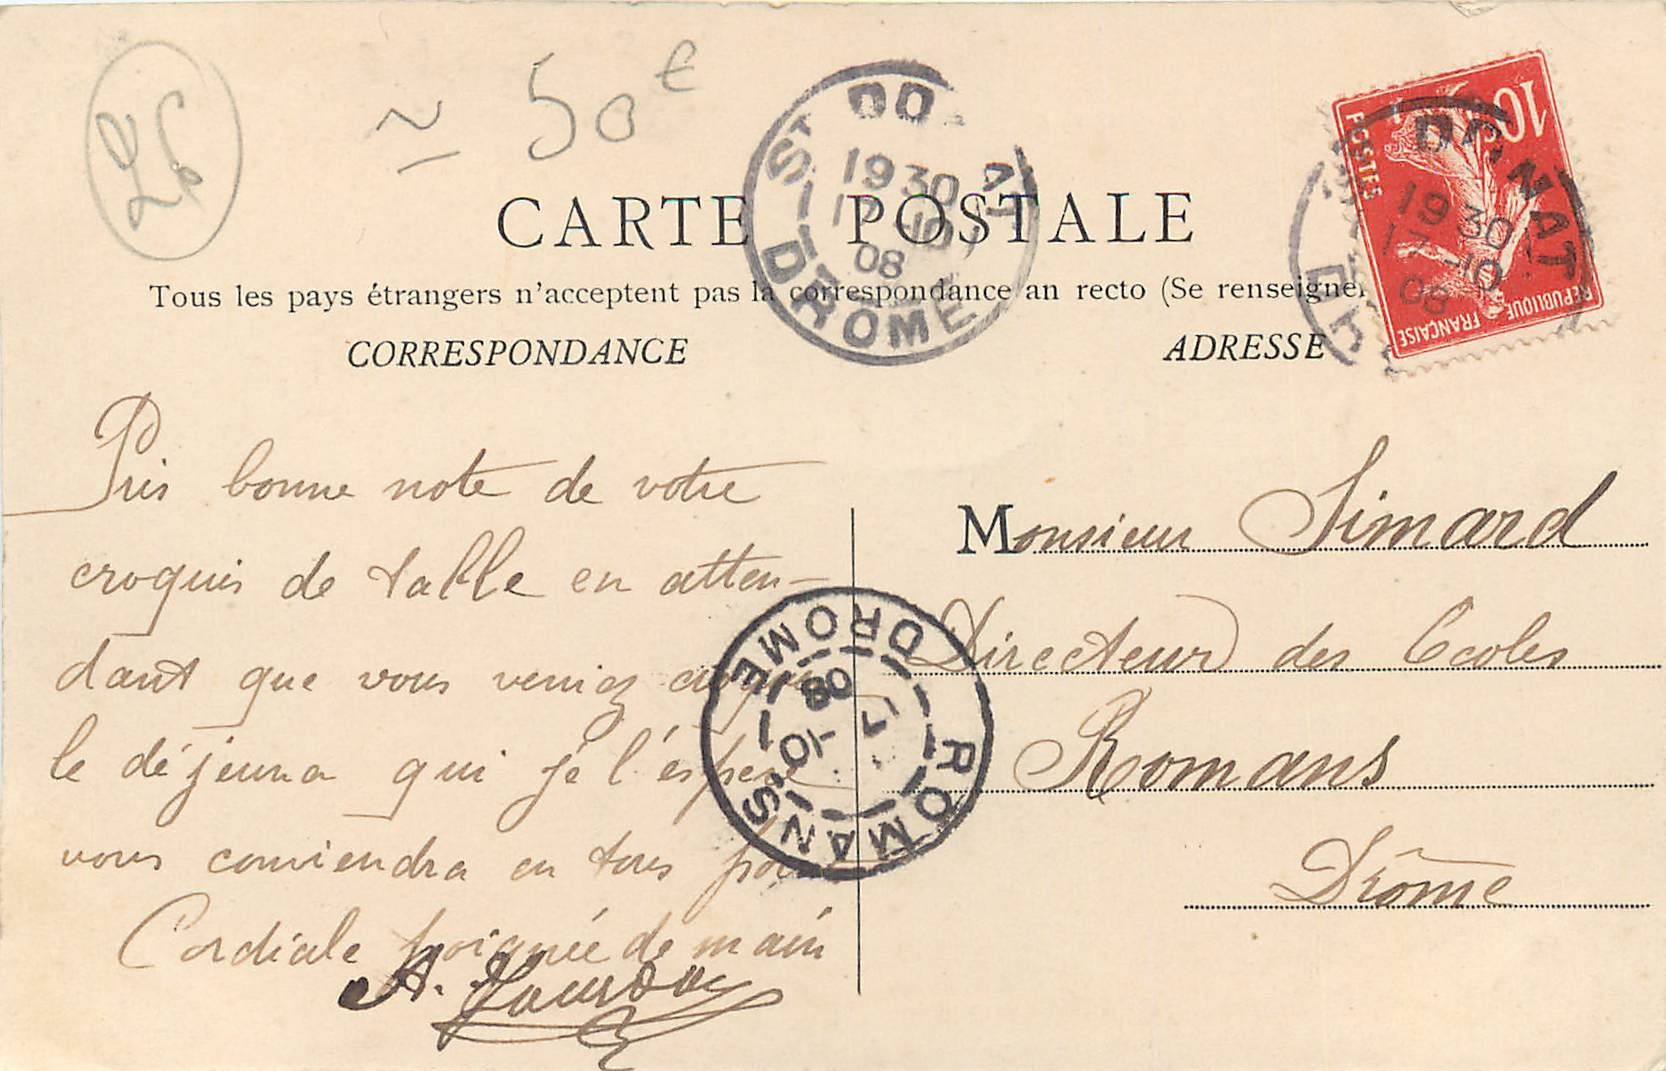 ≃ 50 €
CARTE POSTALE
Tous les pays étrangers n'acceptent pas la correspondance an recto (Se renseigner
CORRESPONDANCE
ADRESSE
ST DONAT
19 30
17 -10
08
DROME
10c
POSTES
REPUBLIQUE FRANÇAISE
DONAT
19 30
17 -10
08
Pris bonne note de votre
croquis de table en atten-
dant que vous veniez
le déjeuna qui je l'éspere
vous conviendra en tous
Cordiale poignée de main
A. Jourdan
Monsieur Simard
Directeur des Ecoles
Romans
Drôme
ROMANS
DROME
17
-10
08